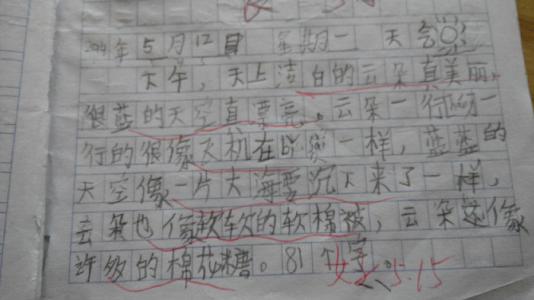 5月12日 星期一 天气
下午,天上洁白的云朵真美丽。
很蓝的天空真漂亮。云朵一行一
行的很像飞机在喷一样,蓝蓝的
天空像一片大海要沉下来了一样,
云朵也像软软的软棉被,云朵还像
许多的棉花糖。81个字 5.15